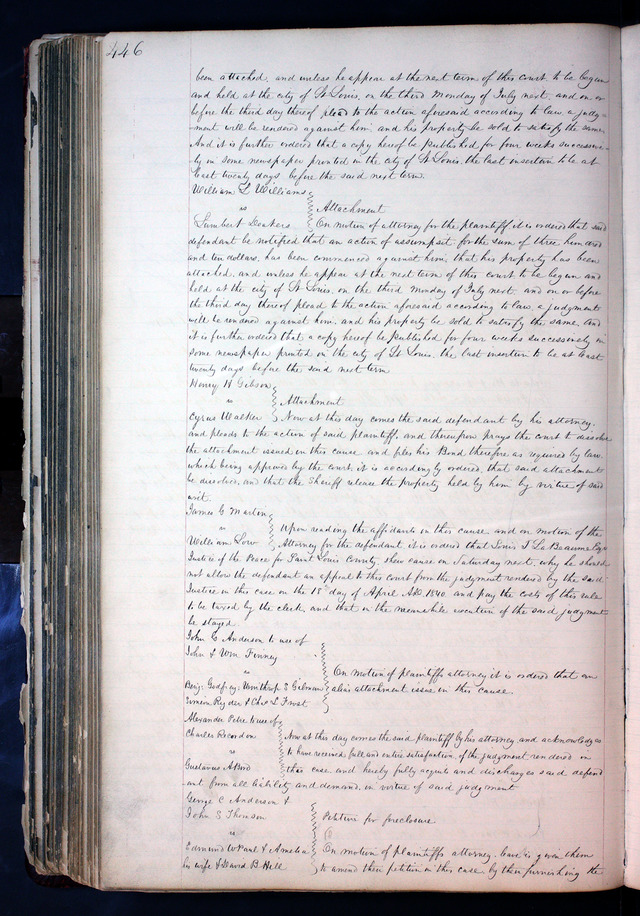 446
been attached, and unless he appear at the next term of this court to be begun
and held at the city of St Louis, on the third Monday of July next, and on or
before the third day thereof plead to the action aforesaid according to law a judg-
ment will be rendered against him and his property be sold to satisfy the same
And it is further ordered that a copy hereof be published for four weeks successive-
ly in some newspaper printed in the city of St Louis, the last insertion to be at
least twenty days before the said next term.
William L Williams
vs
Attachment
Lambert Deters
On motion of attorney for the plaintiff it is ordered that said
defendant be notified that an action of assumpsit for the sum of three hundred
and ten dollars, has been commenced against him, that his property has been
attached, and unless he appear at the next term of this court to be begun and
held at the city of St Louis, on the third Monday of July next and on or before
the third day thereof plead to the action aforesaid, according to law, a judgment
will be rendered against him and his property be sold to satisfy the same. And
it is further ordered that a copy hereof be published for four weeks successively in
some newspaper printed in the city of St Louis, the last insertion to be at least
twenty days before the said next term
Henry H Gibson
vs
Attachment
Cyrus Walker
Now at this day comes the said defendant by his attorney,
and pleads to the action of said plaintiff, and thereupon prays the court to dissolve
the attachment issued in this cause and files his Bond therefore as required by law,
which being approved by the court it is accordingly ordered, that said attachment
be dissolved, and that the Sheriff release the property held by him by virtue of said
writ.
James G Martin
vs
Upon reading the affidavits in this cause and on motion of the
William Low
Attorney for the defendant it is ordered that Louis T LaBeaume Esqr
Justice of the Peace for Saint Louis County shew cause on Saturday next, why he should
not allow the defendant an appeal to this court from the judgment rendered by the said
Justice in this case on the 18th day of April AD. 1840. and pay the costs of this rule
to be taxed by the clerk, and that in the meanwhile execution of the said judgment
be stayed
John C Anderson to use of
John & Wm Finney
vs
On motion of plaintiffs attorney it is ordered that an
Benj. Godfrey, Winthrop S Gilman
alias attachment issue in this cause.
Simeon Ryder & Chas L Frost
Alexander Peter to use of
Charles
Now at this day comes the said plaintiff by his attorney and acknowledges
vs
to have received full and entire satisfaction of the judgment rendered in
Gustavus A Bird
this case and hereby fully acquits and discharges said defend
ant from all liability and demand, in virtue of said judgment
George C Anderson &
John S Thomson
Petition for foreclosure
vs
Edmund W Paul & Amelia
On motion of plaintiffs attorney, leave is given them
his wife & David B Hill
to amend their petition in this case, by then furnishing the